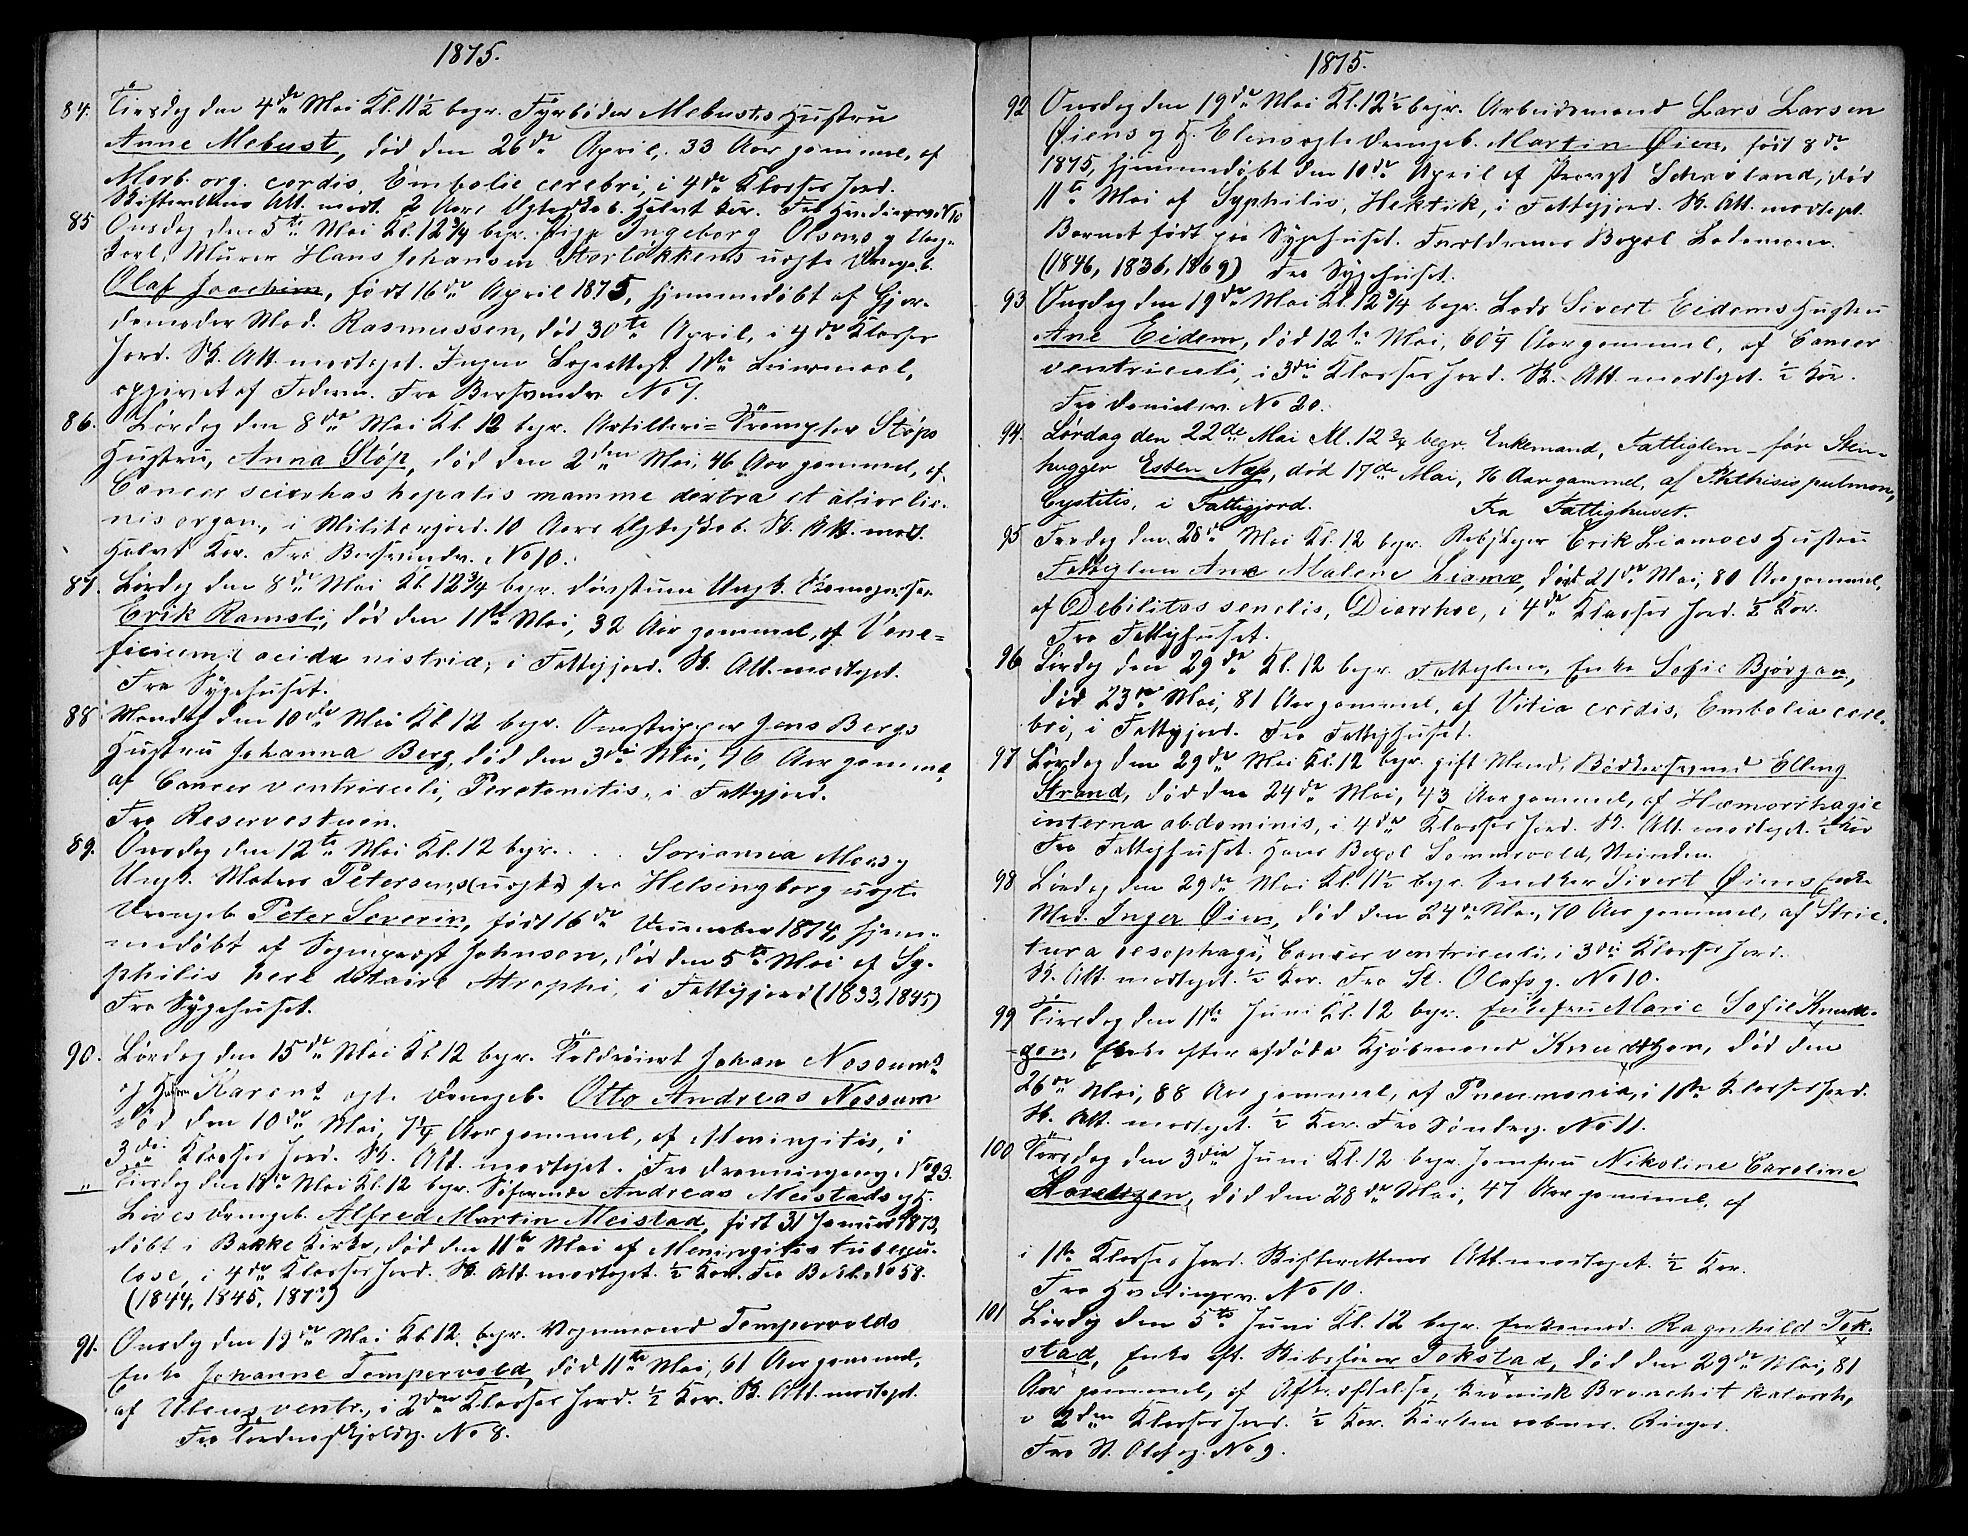 1875.
84. Tirsdag den 4de Mai Kl. 11½ begr. Fyrbøder Mebusts Hustru
Anne Mebust, død den 26de April, 33 Aar gammel, af
Morb. org. cordis, Embolie cerebri, i 4de Klasses Jord.
Skifterettens Att. modt. 2 Aars Ægteskab. Halvt Kor. Fra
85 Onsdag den 5te Mai Kl. 12¾ begr. Pige Ingeborg Olsens og Ungk.
Karl, Murer Hans Johansen Storløkkens uægte Drengeb.
Olaf Joachim, født 16de April 1875, hjemmedøbt af Gjor-
demoder Mad. Rasmussen, død 30te April, i 4de Klasses
Jord. Sk. Att. modtaget. Ingen 1ste Leiermaal,
opgivet af Faderen. Fra Bersvendv. No 7.
86. Lørdag den 8de Mai Kl. 12 begr. Artilleri-Trompeter Støps
Hustru, Anna Støp, død den 2den Mai, 46 Aar gammel, af
Cancer scirrhos hepatis mamme dextra et
organ., i Militærjord. 10 Aars Ægteskab. Sk. Att. modt.
Halvt Kor. Fra Bersvendv. No 10.
87. Lørdag den 8de Mai Kl. 12¾ begr. Ungk.
Erik Ramsli, død den 1ste Mai, 32 Aar gammel, af Vene-
ficium, i Fattigjord. Sk. Att. modtaget.
Fra Sygehuset.
88. Mandag den 10de Mai Kl. 12 begr. Jens Bergs
Hustru Johanna Berg, død den 3die Mai, 76 Aar gammel,
af Cancer ventriculi, Peretonitis, i Fattigjord.
Fra Reservestuen.
89. Onsdag den 12te Mai Kl. 12 begr. . . . Sorianna Moes og
Ungk. Matros Petersens (uægte) fra Helsingborg uægte
Drengeb. Peter Severin, født 16de December 1874, hjem-
medøbt af Sognepræst Johnson, død den 5te Mai af Sy-
philis here ditaire Atrophi, i Fattigjord (1833, 1845)
Fra Sygehuset.
90. Lørdag den 15de Mai Kl. 12 begr. Johan Nossums
og Hustru Karens ægte Drengeb. Otto Andreas Nossum
død den 10de Mai, 7¼ Aar gammel, af Meningitis, i
3die Klasses Jord. Sk. Att. modtaget. Fra Dronningensg. No 23.
„ Tirsdag den 18de Mai Kl. 12 begr. Andreas Meistads og H.
Lives Drengeb. Alfred Martin Meistad, født 31 Januar 1873,
døbt i Bakke Kirke, død den 11te Mai af Meningitis tubercu-
lose, i 4de Klasses Jord. Sk. Att. modtaget. ½ Kor. Fra Bakl. No 58.
(1844, 1845, 1873)
91. Onsdag den 19de Mai Kl. 12. begr. Vognmand Tempervolds
Enke Johanne Tempervold, død 11te Mai, 61 Aar gammel,
af Ulcus ventr., i 2den Klasses Jord. ½ Kor. Sk. Att. modtaget.
Fra Tordenskjoldsg. No 8.
1875.
92 Onsdag den 19de Mai Kl. 12½ begr. Arbeidsmand Lars Larsen
Øiens og H. Elens ægte Drengeb. Martin Øien, født 8de
1875, hjemmedøbt den 10de April af Provst Schavland, død
11te Mai af Syphilis, Hektik, i Fattigjord. Sk. Att. modtaget.
Barnet født paa Sygehuset. Forældrenes Bopæl Lademoen.
(1846, 1836, 1869) Fra Sygehuset.
93 Onsdag den 19de Mai Kl. 12¾ begr. Lods Sivert Eidems Hustru
Ane Eidem, død 12te Mai, 60¼ Aar gammel, af Cancer
ventriculi, i 3die Klasses Jord. Sk. Att. modtaget. ½ Kor.
Fra No 20.
94. Lørdag den 22de Mai Kl. 12¾ begr. Enkemand, Fattiglem - før Sten-
hugger Esten Næs, død 17de Mai, 76 Aar gammel, af Phthisis pulmon,
Cystitis, i Fattigjord. Fra Fattighuset.
95 Fredag den 28de Mai Kl. 12 begr. Rebslager Erik Liamoes Hustru
Fattiglem Ane Malene Liamo, død 21de Mai, 80 Aar gammel,
af Debilitas senelis, Diarrhoe, i 4de Klasses Jord. ½ Kor.
Fra Fattighuset.
96 Lørdag den 29de Kl. 12 begr. Fattiglem, Enke Sofie Bjørgan,
død 23de Mai, 81 Aar gammel, af Vitia cordis, Embolia cere-
bri, i Fattigjord. Fra Fattighuset.
97 Lørdag den 29de Mai Kl. 12 begr. gift Mand, Bødkersvend Elling
Strand, død den 24de Mai, 43 Aar gammel, af Hæmorrhagie
interna abdominis, i 4de Klasses Jord. Sk. Att. modtaget. ½ Kor
Fra Fattighuset. Hans Bopæl Sommervold, Strinden.
98 Lørdag den 29de Mai Kl. 11½ begr. Snedker Sivert Øiens Enke
Mad. Inger Øien, død den 24de Mai, 70 Aar gammel, af Stric-
tura oesophagi, Cancer ventriculi, i 3die Klasses Jord.
Sk. Att. modtaget. ½ Kor. Fra St. Olafsg. No 10.
99 Tirsdag den 1ste Juni Kl. 12 begr. Enkefru Marie Sofie Knudt-
-zon, Enke efter afdøde Kjøbmand Knudtzon, død den
26de Mai, 88 Aar gammel, af Pneumonia, i 1ste Klasses Jord.
Sk. Att. modtaget. ½ Kor. Fra Søndreg. No 11.
100 Torsdag den 3die Juni Kl. 12 begr. Jomfru Nikoline Caroline
Lorentzen, død den 28de Mai, 47 Aar gammel, af
i 1ste Klasses Jord. Skifterettens Att. modtaget. ½ Kor.
Fra No 10.
101 Lørdag den 5te Juni Kl. 12 begr. Enkemad. Ragnhild Tok-
stad, Enke eft. Skibsfører Tokstad, død den 29de Mai, 81
Aar gammel, af Afkræftelse, kronisk Bronchit katarrh,
i 2den Klasses Jord. ½ Kor. Kirken aabnes. Ringes.
Fra St. Olafsg. No 9.